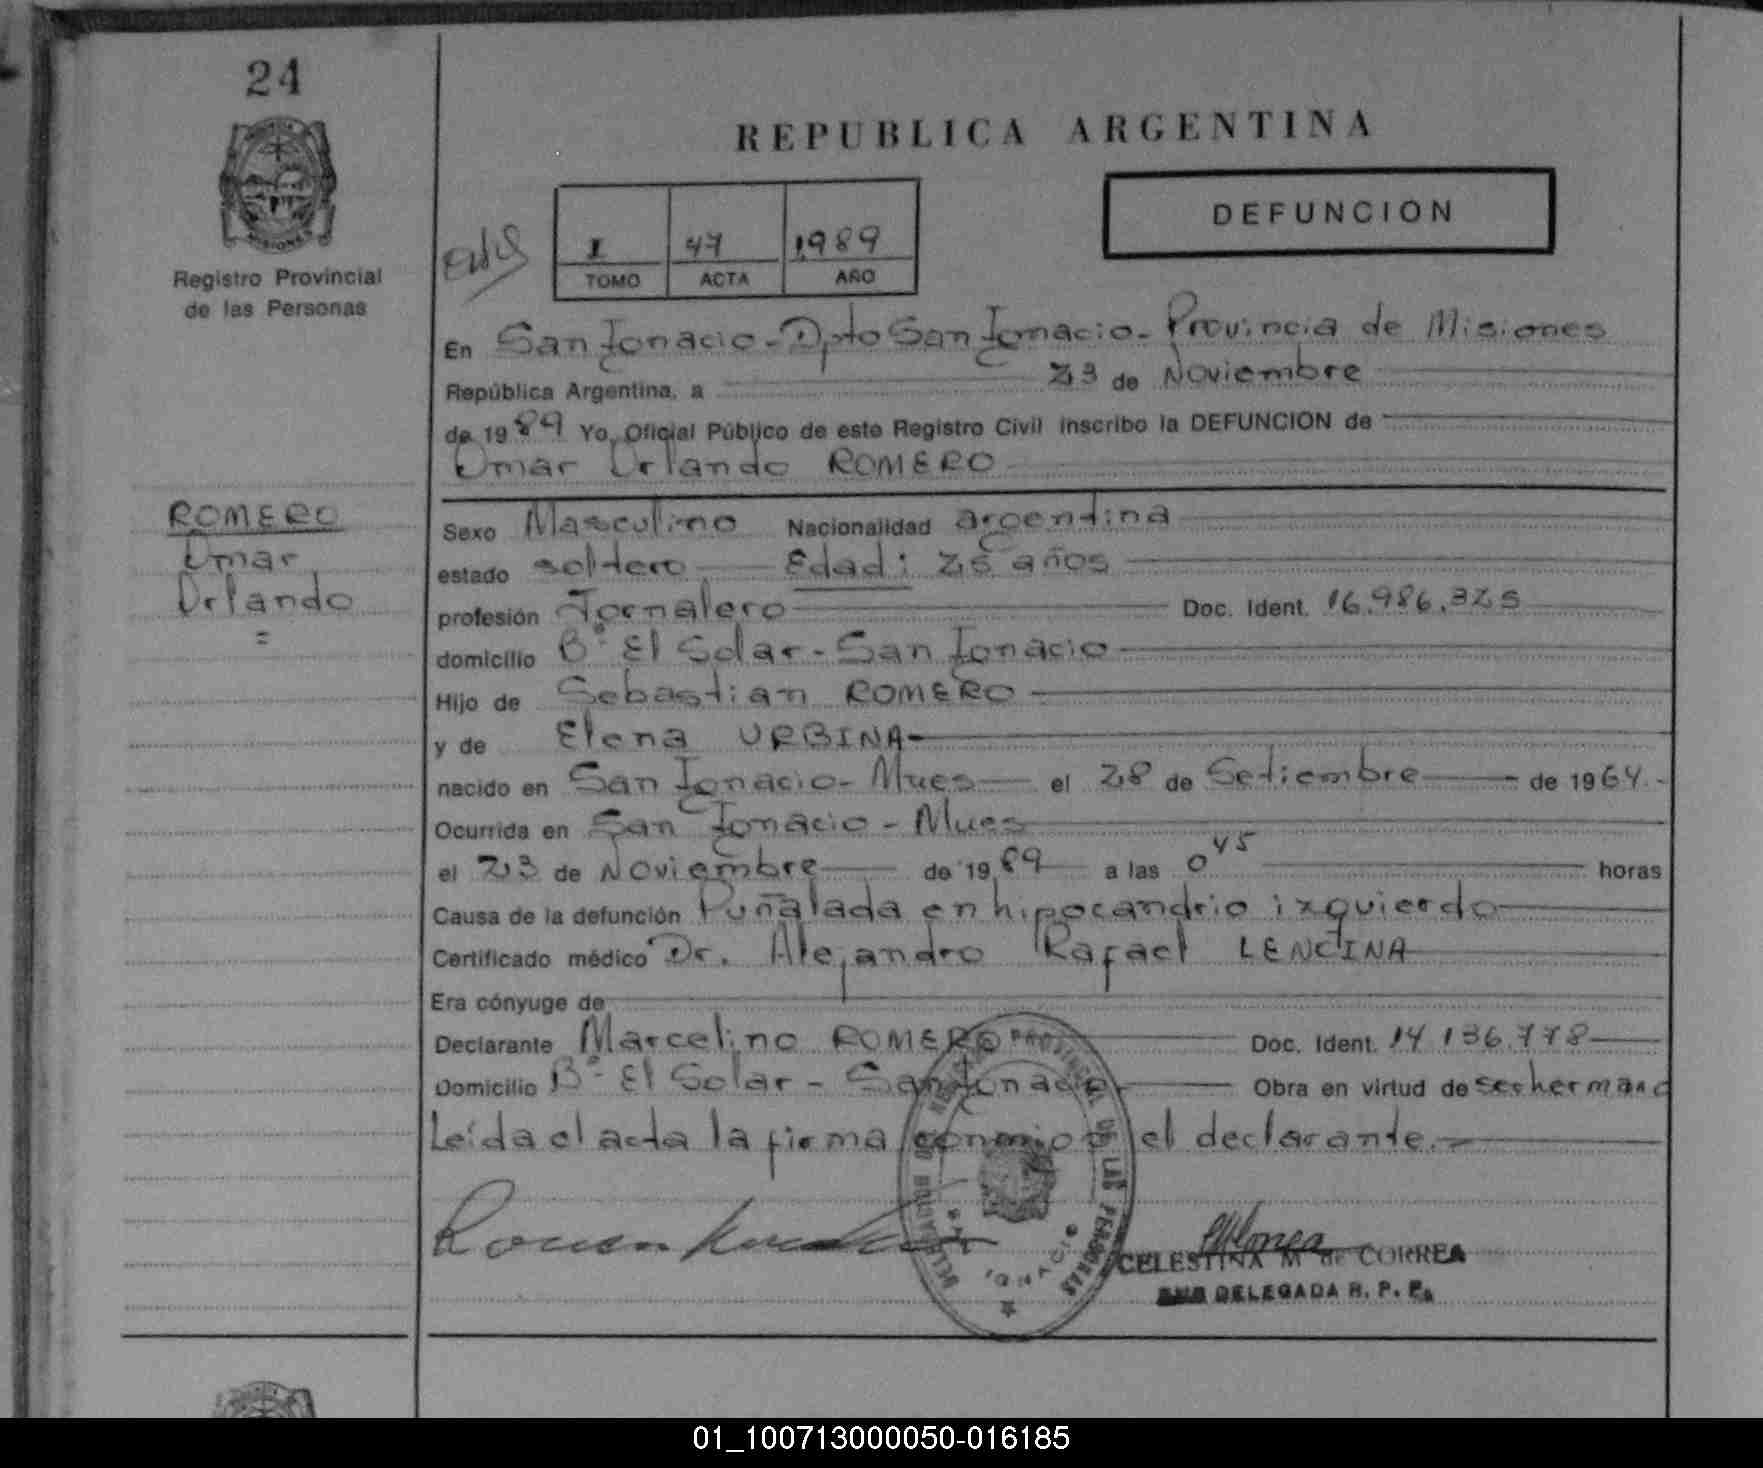 24
REPUBLICA ARGENTINA
DEFUNCION
MISIONES
Registro Provincial
de las Personas
I 47 1989
TOMO ACTA AÑO
En San Ignacio - Dpto San Ignacio - Provincia de Misiones
República Argentina, a 23 de Noviembre
de 1989 Yo, Oficial Público de este Registro Civil inscribo la DEFUNCION de
Omar Orlando ROMERO
ROMERO
Omar
Orlando
=
Sexo Masculino Nacionalidad argentina
estado soltero Edad: 25 años
profesión Jornalero Doc. Ident. 16.986.325
domicilio B° El Solar - San Ignacio
Hijo de Sebastian ROMERO
y de Elena URBINA
nacido en San Ignacio - Mnes el 28 de Setiembre de 1964.-
Ocurrida en San Ignacio - Mnes
el 23 de Noviembre de 1989 a las 0 45 horas
Causa de la defunción Puñalada en hipocandrio izquierdo
Certificado médico Dr. Alejandro Rafael LENCINA
Era cónyuge de
Declarante Marcelino ROMERO Doc. Ident. 14 136.778
Domicilio B° El Solar - San Ignacio Obra en virtud de ser hermano
Leída el acta la firma conmigo el declarante.-
PROVINCIAL DE LAS PERSONAS
SAN IGNACIO
CELESTINA M de CORREA
SUB DELEGADA R. P. P.
01_100713000050-016185